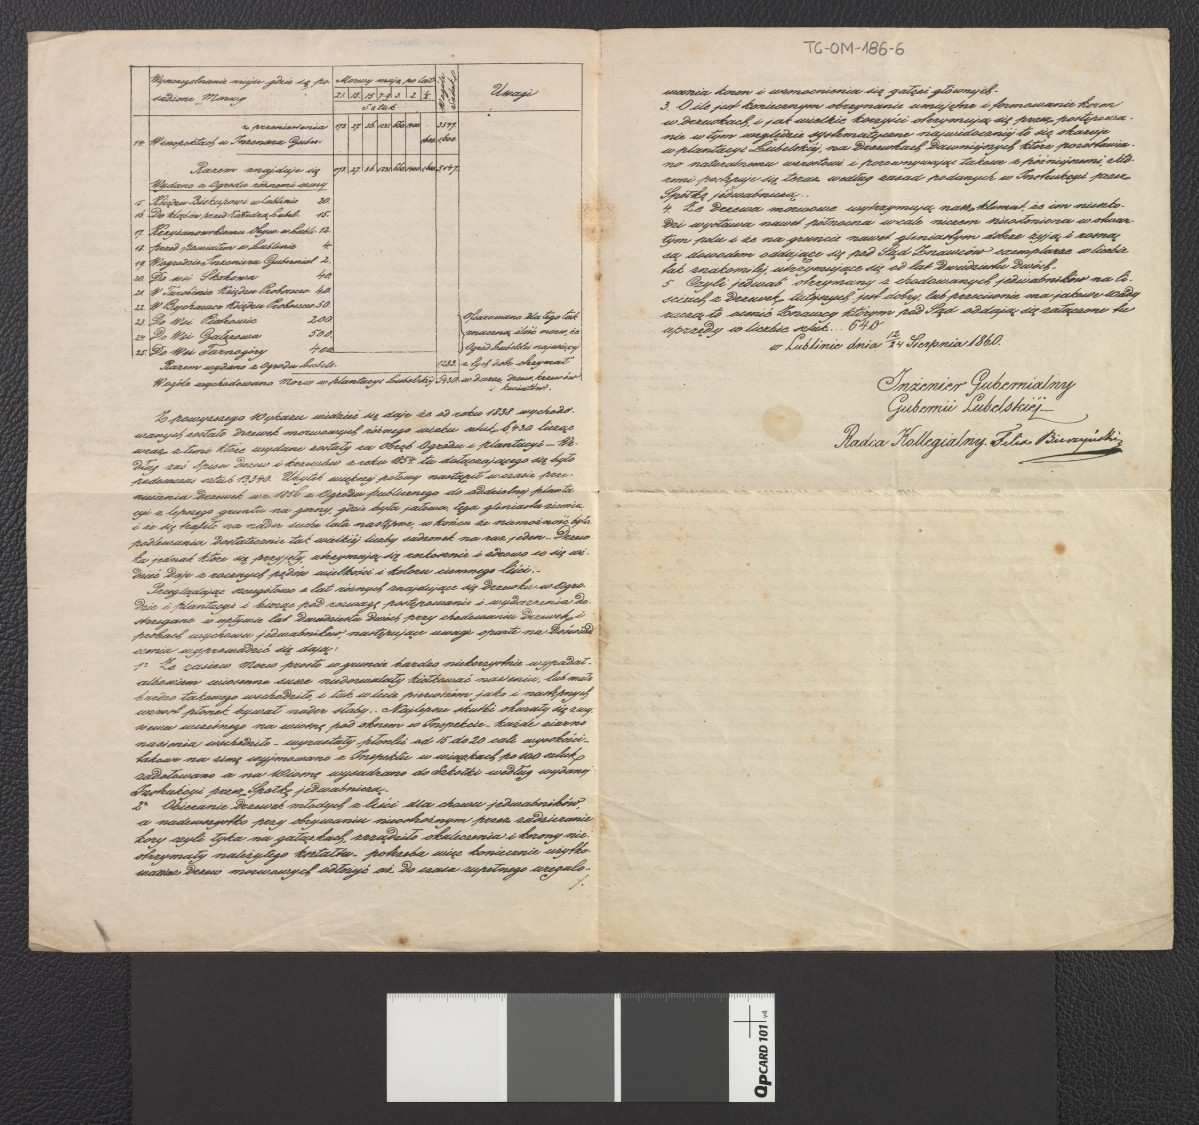 TG-OM-186-6
Wyszczególnienie miejsc gdzie są po-
sadzone Morwy
Morwy mają po lat
21. 12. 15. 7-9 3. 2. 1.
Sztuk
Wogóle Sztuk
Uwagi
z przeniesienia 3547.
14. W inspektach w Inżeniera Guber- 1600 1600
Razem znajduje się
Wydano z Ogrodu różnemi czasy
15. Księżom Biskupowi w Lublinie 20.
16. Do klombów przed Katedrą Lubel. 15.
17. Krzyżanowskiemu w Lubl. 12.
18. Przed w Lublinie 4.
19. W ogrodzie Inżeniera Gubernial 2.
20. Do wsi 40.
21. W Księdzu Proboszcz. 40.
22. W Bychawce Księdzu Proboszcz. 50.
23. Do Wsi Piotrowic 200.
24. Do Wsi Gałęzowa 500.
25. Do Wsi Tarnogóry 400
Razem wydano z Ogrodu Lubels. 1283.
Wogóle wychodowano Morw w plantacyi Lubelskiej 6430
Ofiarowano dla tego tak
znaczną ilość morw, że
Ogród Lubelski najwięcej
z tych dóbr otrzymał
w darze, drzew, krzewów
kwiatów.
Z powyższego Wykazu widzieć się daje że od roku 1838 wychodo-
wanych zostało drzewek morwowych różnego wieku sztuk 6,430 licząc
wraz z temi które wydane zostały za Obręb Ogrodu i plantacyi – We-
dług zaś Spisu drzew i krzewów z roku 1854 tu dołączającego się było
podówczas sztuk 13,340. Ubytek większej połowy nastąpił w czasie prze-
niesienia drzewek w r. 1856 z Ogrodu publicznego do oddzielnej planta-
cyi z lepszego gruntu na gorszy, gdzie była jałowa, tęga gliniasta ziemia
i że się trafiło na nader suche lata następne, w końcu że niemożność było
podlewania dostatecznie tak wielkiej liczby sadzonek na raz jeden – Drzew-
ka jednak które się przyjęły, utrzymują się rozkosznie i zdrowo co się wi-
dzieć daje z rocznych pędów wielkości i koloru ciemnego liści. –
Przeglądając szczegółowo z lat różnych znajdujące się drzewka w Ogro-
dzie i plantacyi i biorąc pod rozwagę postępowanie i wydarzenia do-
strzegane w upływie lat dwudziestu dwóch przy chodowaniu drzewek, i
probach wychowu jedwabników, następujące uwagi oparte na Doświad-
czeniu wyprowadzić się dają:
1º Że zasiew Morw prosto w gruncie bardzo niekorzystnie wypadał –
albowiem wiosenne susze niedozwalały kiełkować nasieniu, lub mało
bardzo takowego wschodziło, i tak w lecie pierwszem jako i następnych
wzrost płonek bywał nader słaby. – Najlepsze skutki okazały się z wy-
siewu wczesnego na wiosnę pod oknem w Inspekcie – każde ziarno
nasienia weschodziło – wyrastały płonki od 15 do 20 cali wysokości –
takowe na zimę wyjmowano z Inspektu w wiązkach po 100 sztuk
zadołowano a na Wiosnę wysadzano do Szkółki według wydanej
Instrukcyi przez Spółkę jedwabniczą.
2º Obieranie drzewek młodych z liści dla chowu jedwabników,
a nadewszystko przy obrywaniu nieostrożnym przez zadzieranie
kory czyli łyka na gałązkach, zrządziło okaleczenia i korony nie
otrzymały należytego kształtu – potrzeba więc koniecznie użytko-
wanie drzew morwowych odłożyć aż do czasu zupełnego uregulo-
./.
wania koron i wzmocnienia się gałęzi głównych. –
3. O ile jest koniecznem obrzynanie umiejętne i formowanie koron
w drzewkach, i jak wielkie korzyści otrzymują się przez postępowa-
nie w tym względzie systematyczne najwidoczniej to się okazuje
w plantacyi Lubelskiej na drzewkach dawniejszych które pozostawia-
no naturalnemu wzrostowi i porównywając takowe z późniejszemi, z któ-
remi postępuje się teraz według zasad podanych w Instrukcyi przez
Spółkę jedwabniczą.
4. Że drzewa morwowe wytrzymują nasz klimat, że im nieszko-
dzi wystawa nawet północna wcale niczem nieosłoniona w otwar-
tym polu i że na gruncie nawet gliniastym dobrze żyją i rosną
są dowodem oddające się pod Sąd Znawców exemplarze w liczbie
tak znakomitej, utrzymujące się od lat dwudziestu dwóch. –
5. Czyli jedwab otrzymany z chodowanych jedwabników na li-
ściach z drzewek tutejszych jest dobry, lub przeciwnie ma jakowe wady
raczą to ocenić Znawcy którym pod Sąd oddają się załączone tu
oprzędy w liczbie sztuk ... 640
w Lublinie dnia 12/24 Sierpnia 1860.
Inżenier Gubernialny
Gubernii Lubelskiej –
Radca Kollegialny Felix Bieczyński
QPCARD 101 v4